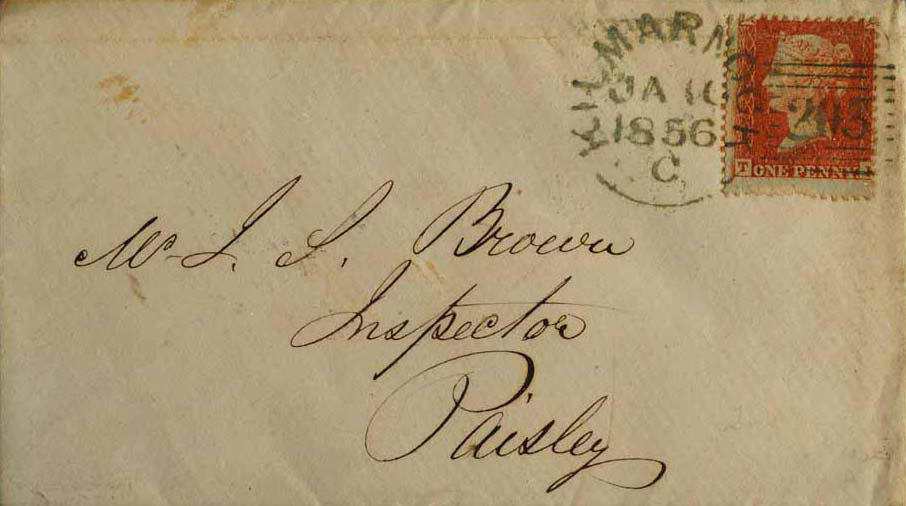 KILMARNOCK
JA 10
1856
C
203
ONE PENNY
Mr J. S. Brown
Inspector
Paisley